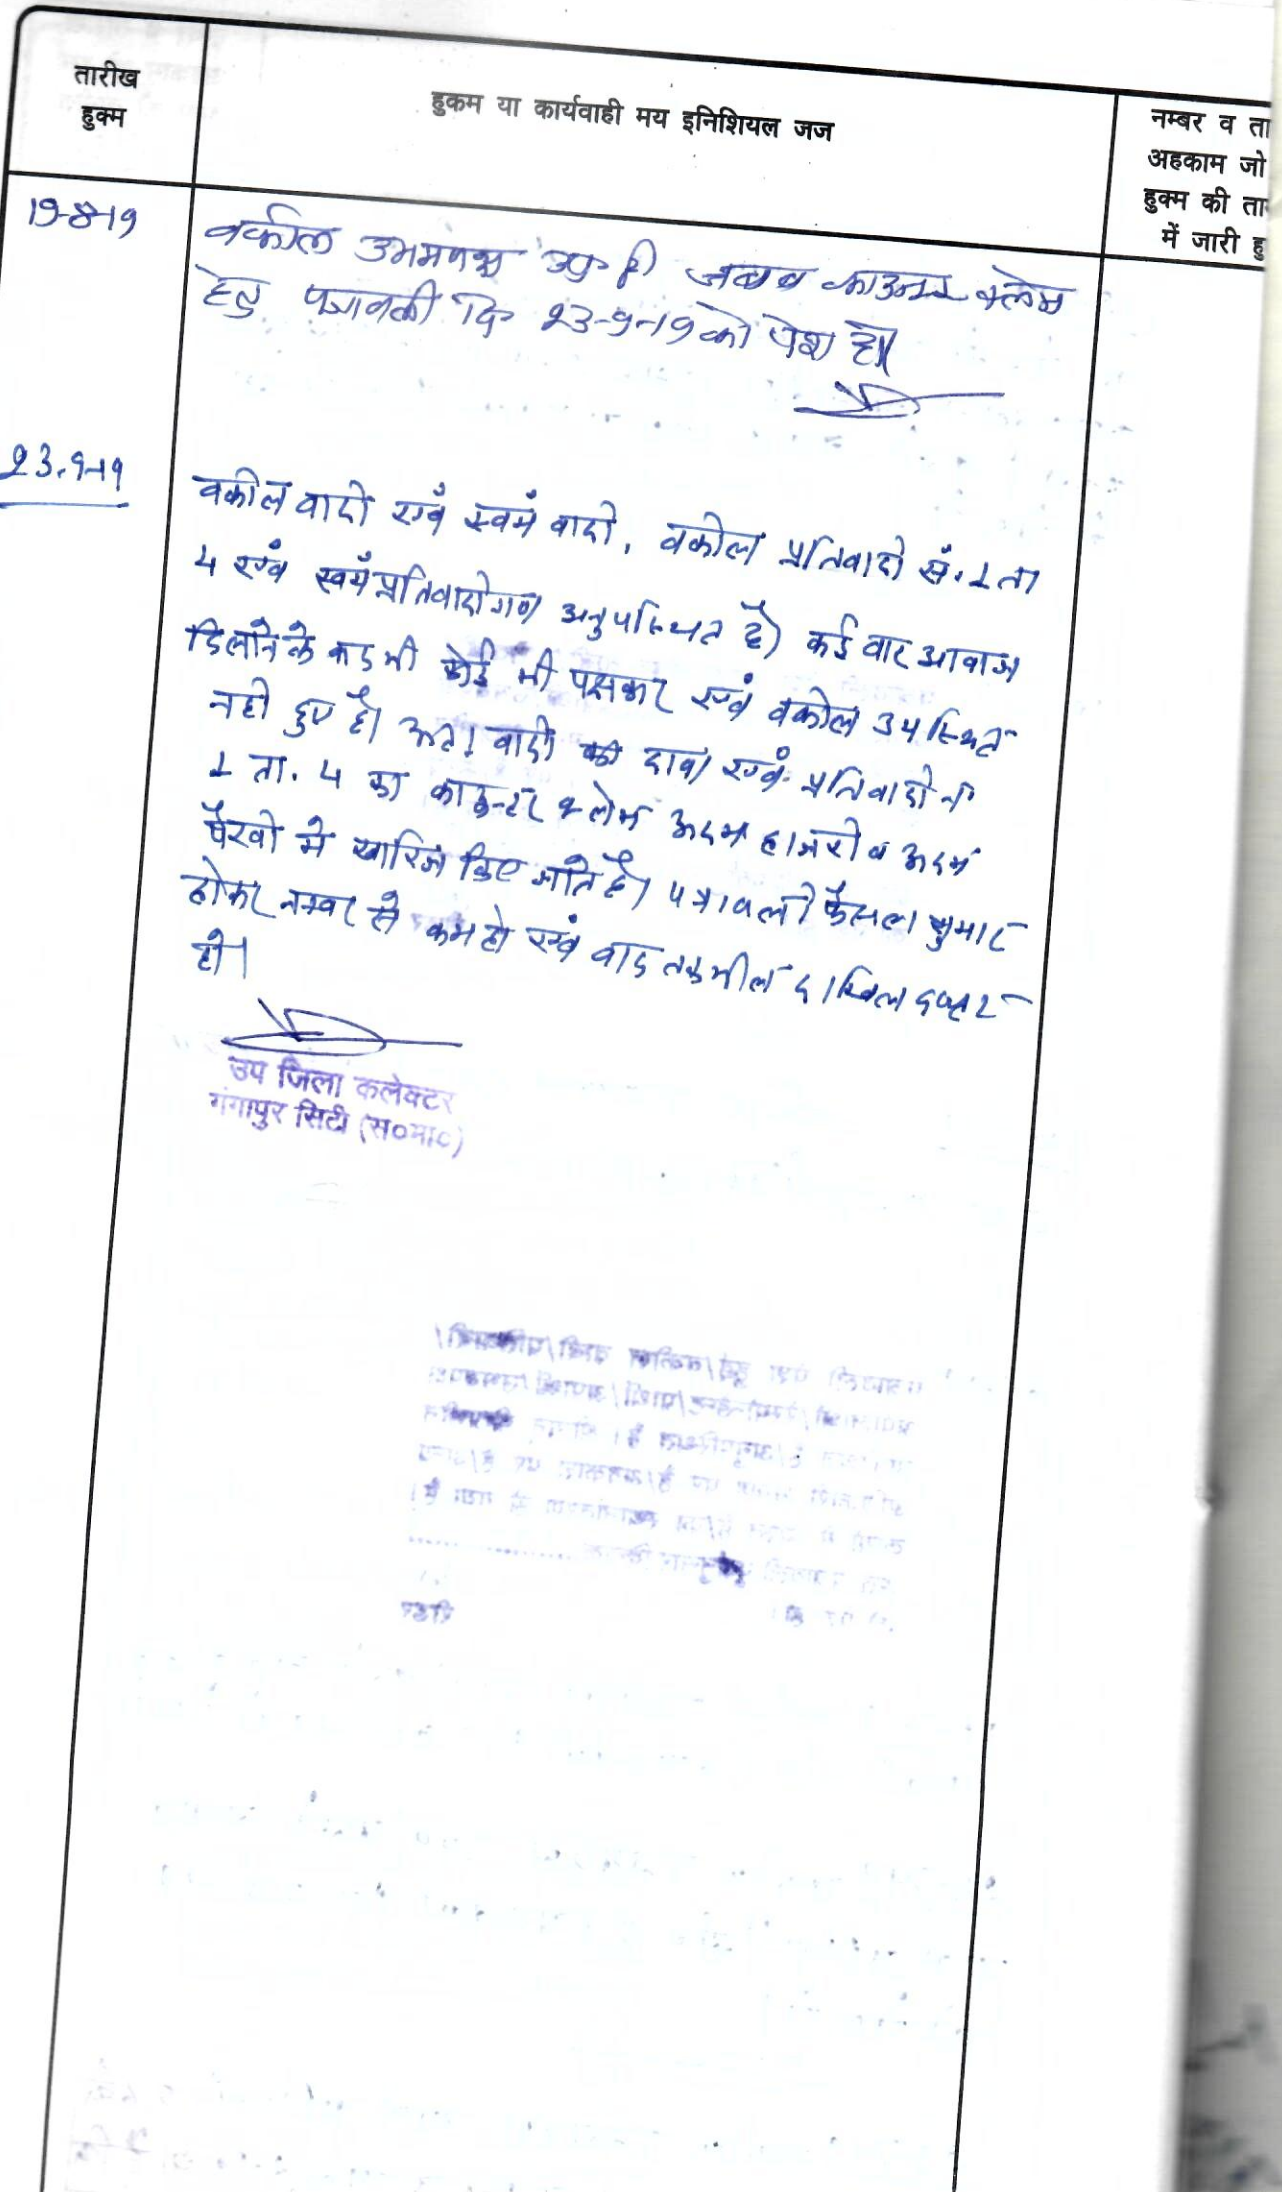 तारीख
हुक्म
हुकम या कार्यवाही मय इनिशियल जज
नम्बर व ता
अहकाम जो
हुक्म की ता
में जारी हु
19-8-19
वकील उभयपक्ष उप. है। जवाब काउन्टर क्लेम
हेतु पत्रावली दि 23-9-19 को पेश हो।
23.9-19
वकील वादी एवं स्वयं वादी, वकील प्रतिवादी सं. 1 ता
4 एवं स्वयं प्रतिवादीगण अनुपस्थित है। कई बार आवाज
दिलाने के बाद भी कोई भी पक्षकार एवं वकील उपस्थित
नही हुए है। अतः वादी का दावा एवं प्रतिवादी नं
1 ता. 4 का काउन्टर क्लेम अदम हाजरी व अदम
पैरवी मे खारिज किए जाते है। पत्रावली फैसला शुमार
होकर नम्बर से कम हो एवं बाद तकमील दाखिल दफ्तर
हो।
उप जिला कलेक्टर
गंगापुर सिटी (स०मा०)